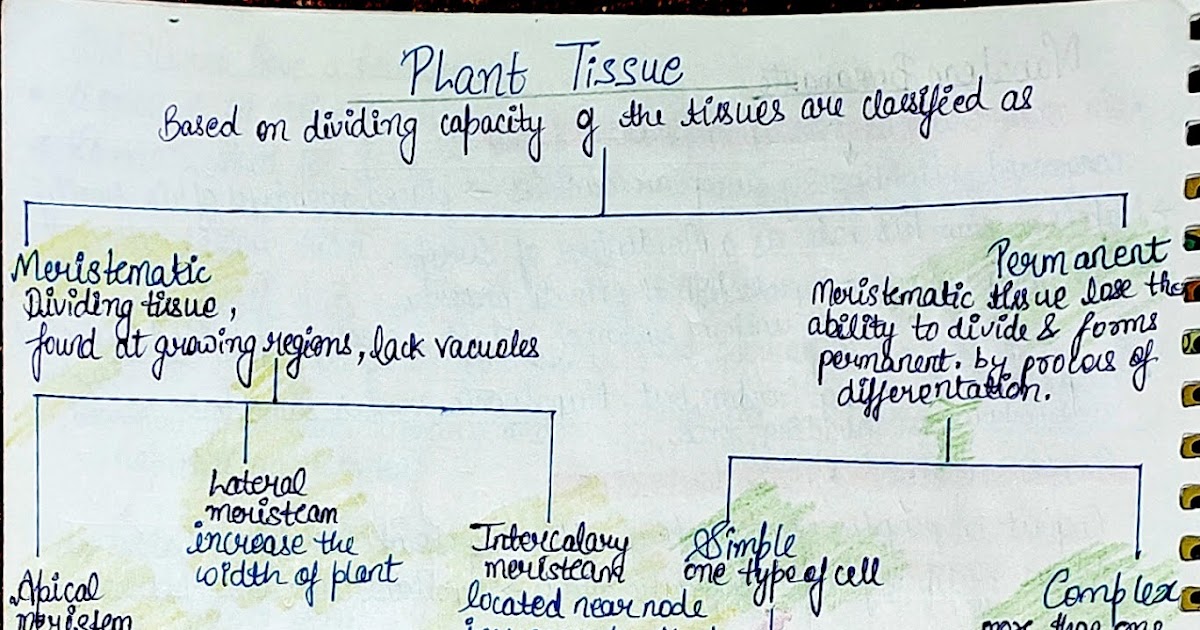 Plant Tissue
Based on dividing capacity of the tissues are classified as
Meristematic
Dividing tissue,
found at growing regions, lack vacuoles
Permanent
Meristematic tissue lose the
ability to divide & forms
permanent. by process of
differentation.
Lateral
meristeam
increase the
width of plant
Intercalary
meristeam
located near node
Simple
one type of cell
Apical
meristem
Complex
more than one